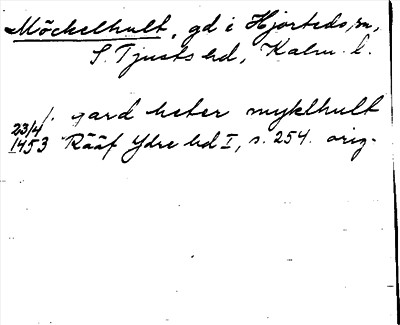 Möckelhult, gd i Hjorteds sn,
S. Tjusts hd, Kalm. l.
23/4 1453 /. gard heter myklhult
Rääf Ydre hd I, s. 254. orig.